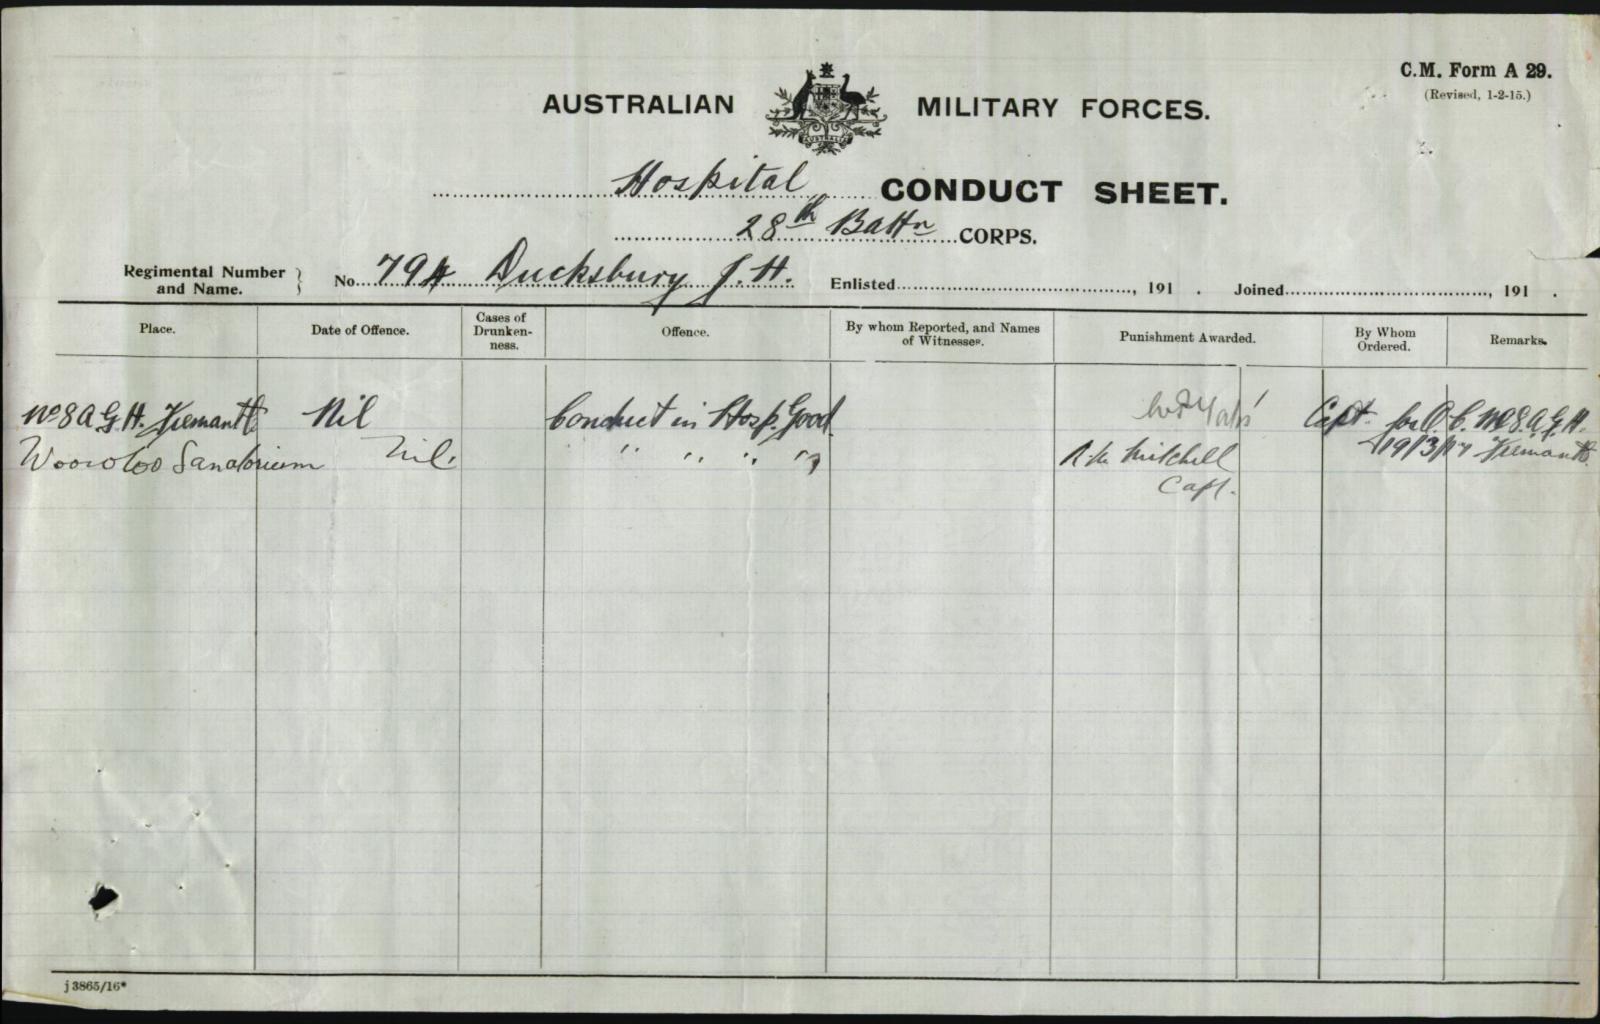 C.M. Form A 29.
(Revised, 1-2-15.)
AUSTRALIAN MILITARY FORCES.
AUSTRALIA
Hospital CONDUCT SHEET.
28th Battn CORPS.
Regimental Number and Name. } No. 794 Ducksbury J. H. Enlisted, 191 . Joined, 191 .
Place. Date of Offence. Cases of Drunken-ness. Offence. By whom Reported, and Names of Witnesses. Punishment Awarded. By Whom Ordered. Remarks.
No 8 A G H. Fremantle Nil Conduct in Hosp. Good. Capt. for O. C. No 8 A. G. H.
19/3/17 Fremantle.
Wooroloo Sanatorium Nil. " " " " Mitchell
Capt.
j 3865/16*